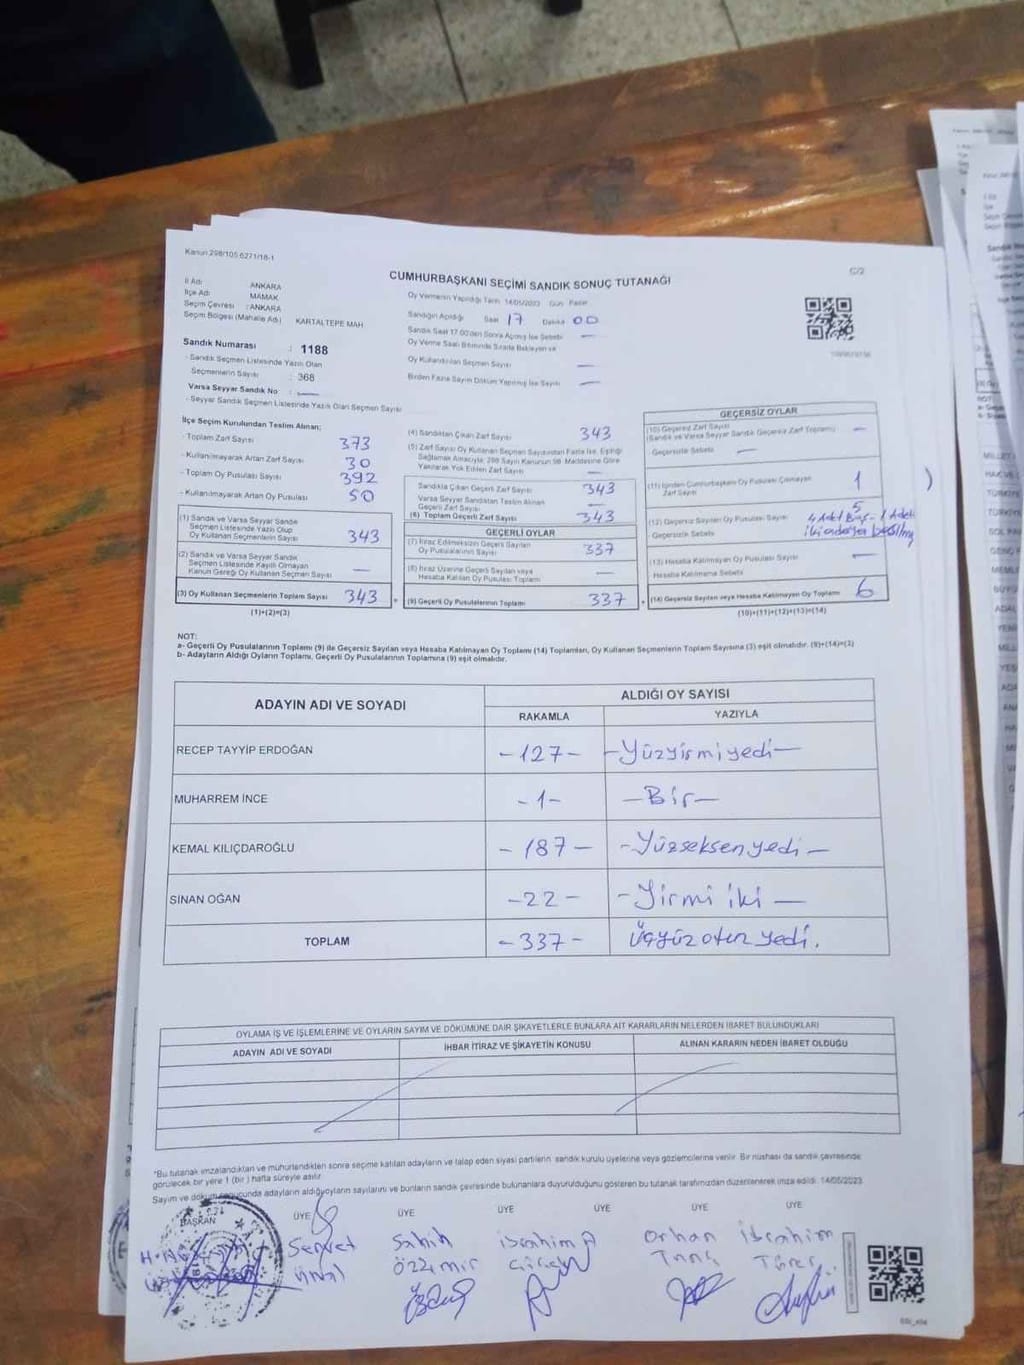 Kanun 298/105 6271/18-1
CUMHURBAŞKANI SEÇİMİ SANDIK SONUÇ TUTANAĞI
C/2
İl Adı : ANKARA
İlçe Adı : MAMAK
Seçim Çevresi : ANKARA
Seçim Bölgesi (Mahalle Adı) KARTALTEPE MAH
Oy Vermenin Yapıldığı Tarih 14/05/2023 Gün Pazar
Sandığın Açıldığı Saat 17 Dakika 00
Sandık Saat 17.00'den Sonra Açılmış İse Sebebi —
Oy Verme Saati Bitiminde Sırada Bekleyen ve
Oy Kullandırılan Seçmen Sayısı —
Birden Fazla Sayım Döküm Yapılmış İse Sayısı —
Sandık Numarası : 1188
- Sandık Seçmen Listesinde Yazılı Olan
Seçmenlerin Sayısı : 368
Varsa Seyyar Sandık No : —
- Seyyar Sandık Seçmen Listesinde Yazılı Olan Seçmen Sayısı
İlçe Seçim Kurulundan Teslim Alınan:
- Toplam Zarf Sayısı 373
- Kullanılmayarak Artan Zarf Sayısı 30
- Toplam Oy Pusulası Sayısı 392
- Kullanılmayarak Artan Oy Pusulası 50
(1) Sandık ve Varsa Seyyar Sandık
Seçmen Listesinde Yazılı Olup
Oy Kullanan Seçmenlerin Sayısı 343
(2) Sandık ve Varsa Seyyar Sandık
Seçmen Listesinde Kayıtlı Olmayan
Kanun Gereği Oy Kullanan Seçmen Sayısı —
(3) Oy Kullanan Seçmenlerin Toplam Sayısı 343 =
(1)+(2)=(3)
(4) Sandıktan Çıkan Zarf Sayısı 343
(5) Zarf Sayısı Oy Kullanan Seçmen Sayısından Fazla İse, Eşitliği
Sağlamak Amacıyla, 298 Sayılı Kanunun 98. Maddesine Göre
Yakılarak Yok Edilen Zarf Sayısı —
Sandıkta Çıkan Geçerli Zarf Sayısı 343
Varsa Seyyar Sandıktan Teslim Alınan
Geçerli Zarf Sayısı —
(6) Toplam Geçerli Zarf Sayısı 343
GEÇERLİ OYLAR
(7) İtiraz Edilmeksizin Geçerli Sayılan
Oy Pusulalarının Sayısı 337
(8) İtiraz Üzerine Geçerli Sayılan veya
Hesaba Katılan Oy Pusulası Toplamı —
(9) Geçerli Oy Pusulalarının Toplamı 337 +
GEÇERSİZ OYLAR
(10) Geçersiz Zarf Sayısı
(Sandık ve Varsa Seyyar Sandık Geçersiz Zarf Toplamı) —
Geçersizlik Sebebi —
(11) İçinden Cumhurbaşkanı Oy Pusulası Çıkmayan
Zarf Sayısı 1
(12) Geçersiz Sayılan Oy Pusulası Sayısı 5
Geçersizlik Sebebi 4 Adet Boş - 1 Adet
iki adaya basılmış
(13) Hesaba Katılmayan Oy Pusulası Sayısı —
Hesaba Katılmama Sebebi
(14) Geçersiz Sayılan veya Hesaba Katılmayan Oy Toplamı 6
(10)+(11)+(12)+(13)=(14)
NOT:
a- Geçerli Oy Pusulalarının Toplamı (9) ile Geçersiz Sayılan veya Hesaba Katılmayan Oy Toplamı (14) Toplamları, Oy Kullanan Seçmenlerin Toplam Sayısına (3) eşit olmalıdır. (9)+(14)=(3)
b- Adayların Aldığı Oyların Toplamı, Geçerli Oy Pusulalarının Toplamına (9) eşit olmalıdır.
ADAYIN ADI VE SOYADI ALDIĞI OY SAYISI
RAKAMLA YAZIYLA
RECEP TAYYİP ERDOĞAN -127- -Yüzyirmiyedi-
MUHARREM İNCE -1- -Bir-
KEMAL KILIÇDAROĞLU -187- -Yüzseksenyedi-
SİNAN OĞAN -22- -Yirmi iki-
TOPLAM -337- Üçyüz otuz yedi.
OYLAMA İŞ VE İŞLEMLERİNE VE OYLARIN SAYIM VE DÖKÜMÜNE DAİR ŞİKAYETLERLE BUNLARA AİT KARARLARIN NELERDEN İBARET BULUNDUKLARI
ADAYIN ADI VE SOYADI İHBAR İTİRAZ VE ŞİKAYETİN KONUSU ALINAN KARARIN NEDEN İBARET OLDUĞU
*Bu tutanak imzalandıktan ve mühürlendikten sonra seçime katılan adayların ve talep eden siyasi partilerin sandık kurulu üyelerine veya gözlemcilerine verilir. Bir nüshası da sandık çevresinde
görülecek bir yere 1 (bir) hafta süreyle asılır.
Sayım ve döküm sonucunda adayların aldığı oyların sayılarını ve bunların sandık çevresinde bulunanlara duyurulduğunu gösteren bu tutanak tarafımızdan düzenlenerek imza edildi. 14/05/2023
BAŞKAN ÜYE ÜYE ÜYE ÜYE ÜYE ÜYE
Servet Sahih İbrahim A Orhan İbrahim
Ünal Özdemir